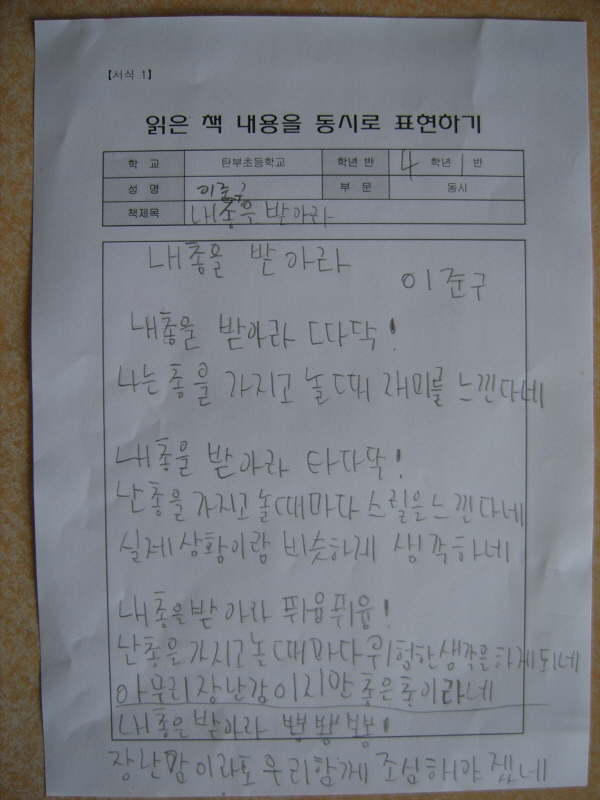 【서식 1】
읽은 책 내용을 동시로 표현하기
학 교 탄부초등학교 학년 반 4 학년 1 반
성 명 이준구 부 문 동시
책제목 내총을 받아라
내총을 받아라
이준구
내총을 받아라 따닥!
나는 총을 가지고 놀때 재미를 느낀다네
내총을 받아라 타다닥!
난 총을 가지고 놀때마다 스릴을 느낀다네
실제상황이랑 비슷하게 생각하네
내총을 받아라 쀠융쀠융!
난 총을 가지고 놀때마다 위험한 생각을 하게되네
아무리 장난감이지만 총은 총이라네
내총을 받아라 뿅뿅뿅!
장난감이라도 우리함께 조심해야 겠네